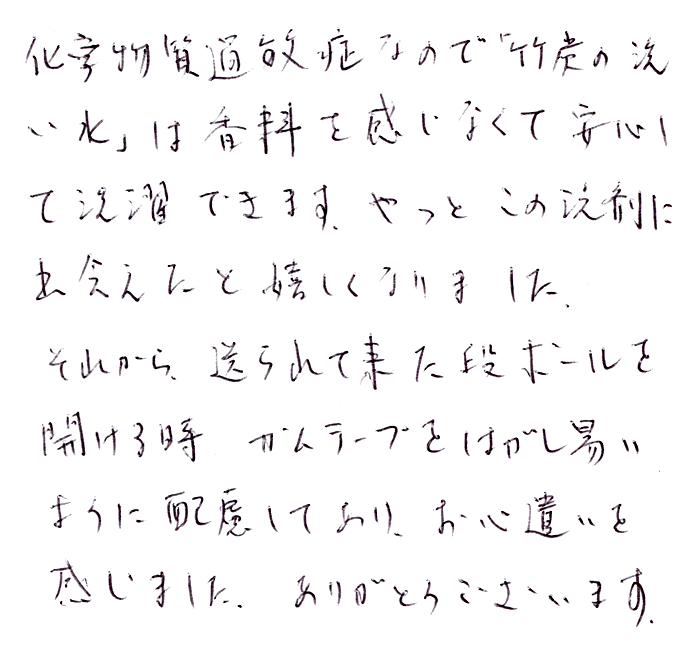 化学物質過敏症なので「竹炭の洗
い水」は香料を感じなくて安心し
て洗濯できます。やっとこの洗剤に
出会えたと嬉しくなりました。
それから、送られて来た段ボールを
開ける時 ガムテープをはがし易い
ように配慮してあり、お心遣いを
感じました。ありがとうございます。